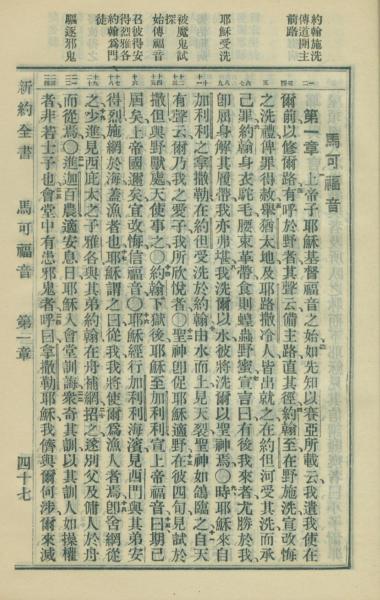 約翰施洗
傳道開主
前路
耶穌受洗
被魔鬼試
探
始傳福音
召彼得安
得烈雅各
約翰爲門
徒
驅逐邪鬼
馬可福音
第一章 上帝子耶穌基督福音之始如先知以賽亞所載云我遣我使在
爾前以修爾路有呼於野者其聲云備主路直其徑約翰至在野施洗宣改悔
之洗禮俾罪得赦舉猶太地及耶路撒冷人皆出就之在約但河受其洗而承
己罪約翰身衣駝毛腰束革帶食則蝗蟲野蜜宣言曰有後我來者尤勝於我
卽屈身解其履帶我亦弗堪我洗爾以水彼將洗爾以聖神焉〇時耶穌來自
加利利之拿撒勒在約但受洗於約翰由水而上見天裂聖神如鴿臨之自天
有聲云爾乃我之愛子我所欣悅者〇聖神卽促耶穌適野在彼四旬見試於
撒但與野獸處天使事之〇約翰下獄後耶穌至加利利宣上帝福音曰期已
屆矣上帝國邇矣宜改悔信福音〇耶穌經行加利利海濱見西門與其弟安
得烈施網於海蓋漁者也耶穌謂之曰從我我將使爾爲漁人者焉卽舍網從
之少進見西庇太之子雅各與其弟約翰在舟補網招之遂別父及傭人於舟
而從焉〇進迦百農適安息日耶穌入會堂訓誨衆奇其訓以其訓人如操權
者非若士子也會堂中有患邪鬼者呼曰拿撒勒耶穌我儕與爾何涉爾來滅
新約全書 馬可福音 第一章 四十七